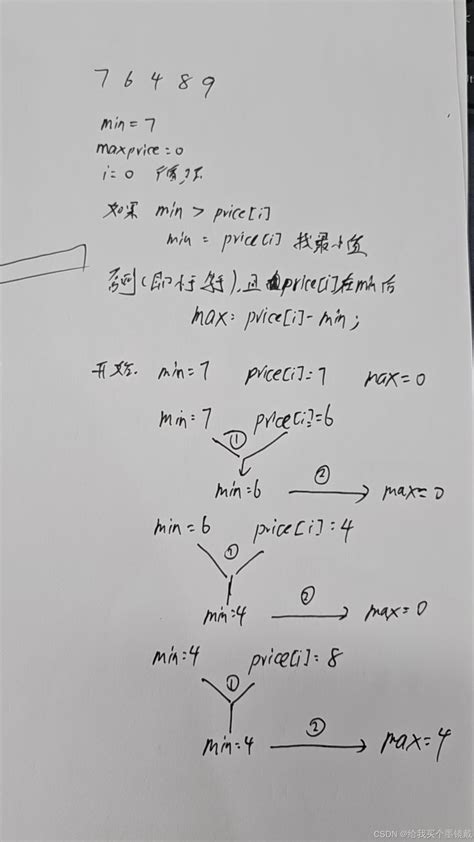 7 6 4 8 9
min=7
maxprice=0
i=0
如果 min > price[i]
min = price[i] 找最小值
否则(即小于等于),且 price[i]在min后
max: price[i]-min;
开始. min=7 price[i]=7 max=0
min:7 price[i]=6
①
min:6 ② max=0
min=6 price[i]:4
①
min:4 ② max=0
min:4 price[i]:8
①
min=4 ② max=4
CSDN @给我买个墨镜戴